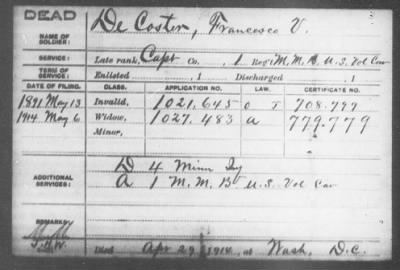 DEAD
NAME OF SOLDIER: De Coster, Francesco V.
SERVICE: Late rank, Capt Co. , 1 Reg't M. M. B. U. S. Vol Cav
TERM OF SERVICE: Enlisted , 1 Discharged , 1
DATE OF FILING. CLASS. APPLICATION NO. LAW. CERTIFICATE NO.
1891 May 13 Invalid, 1021,645 708.797
1914 May 6 Widow, 1027.483 a 779.779
Minor,
ADDITIONAL SERVICES: D 4 Minn Inf
A 1 M. M. B U.S. Vol Cav
REMARKS:
Died Apr 29, 1914, at Wash, D.C.